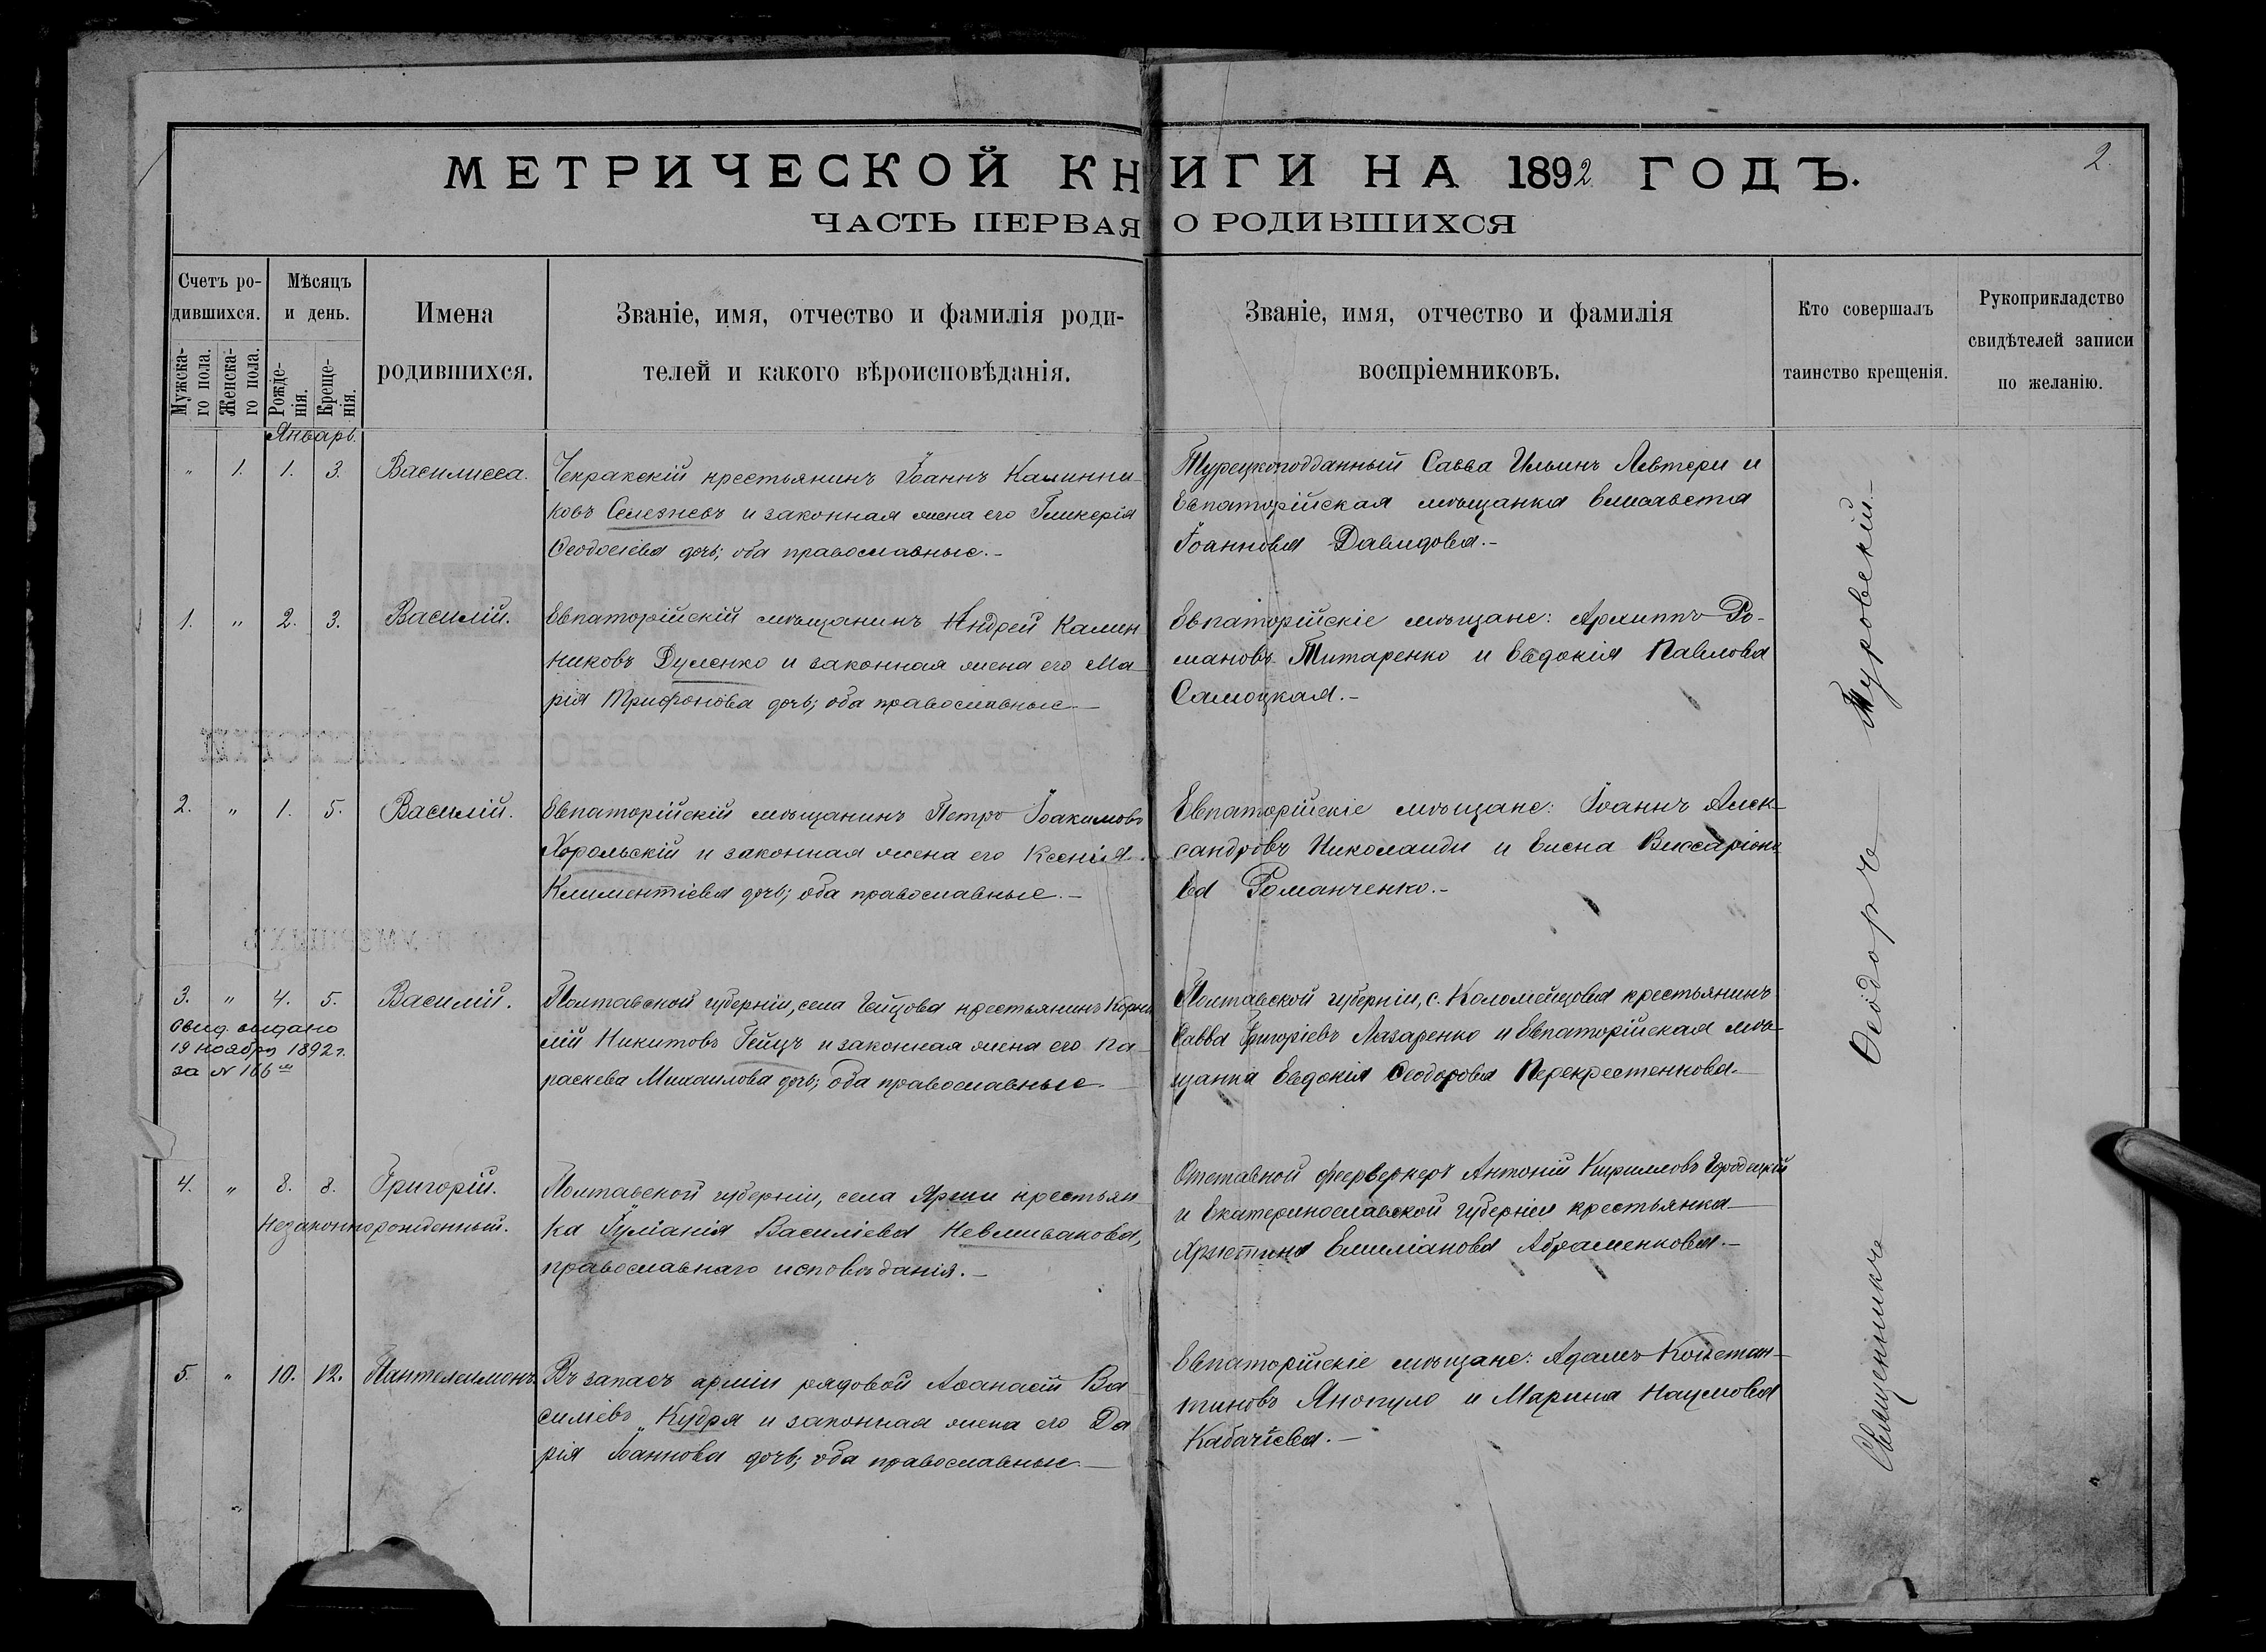 МЕТРИЧЕСКОЙ КНИГИ НА 1892 ГОДЪ.
2.
ЧАСТЬ ПЕРВАЯ О РОДИВШИХСЯ
Счетъ ро-
дившихся.
Мужска-
го пола.
Женска-
го пола.
Мѣсяцъ
и день.
Рожде-
нія.
Креще-
нія.
Имена
родившихся.
Званіе, имя, отчество и фамилія роди-
телей и какого вѣроисповѣданія.
Званіе, имя, отчество и фамилія
воспріемниковъ.
Кто совершалъ
таинство крещенія.
Рукоприкладство
свидѣтелей записи
по желанію.
Январь.
" 1. 1. 3. Василисса.
Чекракскій крестьянинъ Іоаннъ Калинни-
ковъ Селезневъ и законная жена его Гликерія
Ѳеодосіева дочь; оба православные.-
Турецкоподданный Савва Ильинъ Левтери и
Евпаторійская мѣщанка Елисавета
Іоаннова Давидова.-
1. " 2. 3. Василій.
Евпаторійскій мѣщанинъ Андрей Калин
никовъ Дуленко и законная жена его Ма-
рія Трифонова дочь; оба православные.-
Евпаторійскіе мѣщане: Архиппъ Ро-
мановъ Титаренко и Евдокія Павлова
Самоцкая.-
2. " 1. 5. Василій.
Евпаторійскій мѣщанинъ Петръ Іоакимовъ
Хорольскій и законная жена его Ксенія
Климентіева дочь; оба православные.-
Евпаторійскіе мѣщане: Іоаннъ Алек-
сандровъ Николаиди и Елена Виссаріоно
ва Романченко.-
3. " 4. 5. Василій.
Свид. выдано
19 ноября 1892 г.
за № 166
Полтавской губерніи, села крестьянинъ Корни
лій Никитовъ Гейцъ и законная жена его Па-
раскева Михаилова дочь; оба православные.-
Полтавской губерніи, с. Коломейцова крестьянинъ
Савва Григоріевъ Лазаренко и Евпаторійская мѣ-
щанка Евдокія Ѳеодорова Перекрестенкова.-
4. " 8. 8. Григорій.
Незаконнорожденный.
Полтавской губерніи, села крестьян
ка Іуліанія Василіева Невмывакова,
православнаго исповѣданія.-
Отставной фейерверкеръ Антоній Кирилловъ Городецкій
и Екатеринославской губерніи крестьянка
Христина Емиліанова Абраменкова.-
5. " 10. 12. Пантелеимонъ.
Въ запасѣ арміи рядовой Аѳанасій Ва-
силіевъ Кудря и законная жена его Да
рія Іоаннова дочь; оба православные.-
Евпаторійскіе мѣщане: Адамъ Констан-
тиновъ Янопуло и Марина Наумова
Кабачіева.-
"
Священникъ Ѳеодоръ Туровскій.-